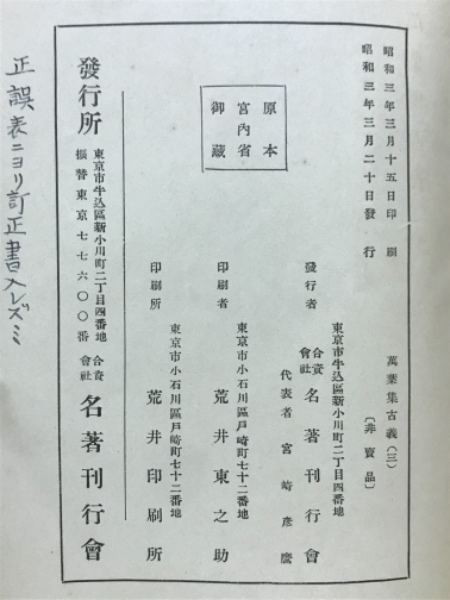 昭和三年三月十五日印刷
昭和三年三月二十日發行
萬葉集古義(三)
〔非賣品〕
原本
宮內省
御藏
東京市牛込區新小川町二丁目四番地
發行者 合資會社 名著刊行會
代表者 宮崎彦鷹
東京市小石川區戶崎町七十二番地
印刷者 荒井東之助
東京市小石川區戶崎町七十二番地
印刷所 荒井印刷所
發行所 東京市牛込區新小川町二丁目四番地 合資會社 名著刊行會
振替東京七七六〇〇番
正誤表ニヨリ訂正書入レズミ